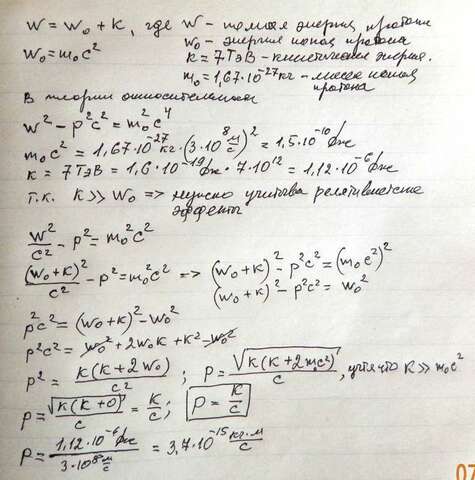 W = W₀ + K, где W – полная энергия протона
W₀ – энергия покоя протона
W₀ = m₀c²
K = 7ТэВ – кинетическая энергия.
m₀ = 1,67·10⁻²⁷кг – масса покоя протона
В теории относительности
W² – p²c² = m₀²c⁴
m₀c² = 1,67·10⁻²⁷кг·(3·10⁸ м/с)² = 1,5·10⁻¹⁰Дж
K = 7ТэВ = 1,6·10⁻¹⁹Дж·7·10¹² = 1,12·10⁻⁶Дж
т.к. K >> W₀ => нужно учитыва релятивистские эффекты
W²/c² – p² = m₀²c²
(W₀+K)²/c² – p² = m₀²c² => (W₀+K)² – p²c² = (m₀c²)²
(W₀+K)² – p²c² = W₀²
p²c² = (W₀+K)² – W₀²
p²c² = W₀² + 2W₀K + K² – W₀²
p² = K(K+2W₀)/c² ; p = √(K(K+2m₀c²))/c, учтя что K >> m₀c²
p = √(K(K+0))/c = K/c; p = K/c
p = 1,12·10⁻⁶Дж / 3·10⁸ м/с = 3,7·10⁻¹⁵ кг·м/с
07